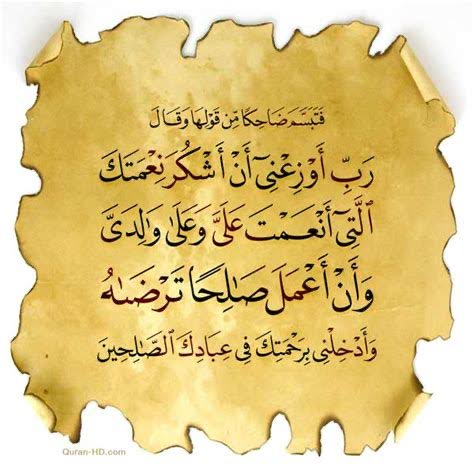 فَتَبَسَّمَ ضَاحِكًا مِّن قَوْلِهَا وَقَالَ
رَبِّ أَوْزِعْنِىٓ أَنْ أَشْكُرَ نِعْمَتَكَ
ٱلَّتِىٓ أَنْعَمْتَ عَلَىَّ وَعَلَىٰ وَٰلِدَىَّ
وَأَنْ أَعْمَلَ صَـٰلِحًا تَرْضَىٰهُ
وَأَدْخِلْنِى بِرَحْمَتِكَ فِى عِبَادِكَ ٱلصَّـٰلِحِينَ
Quran-HD.com